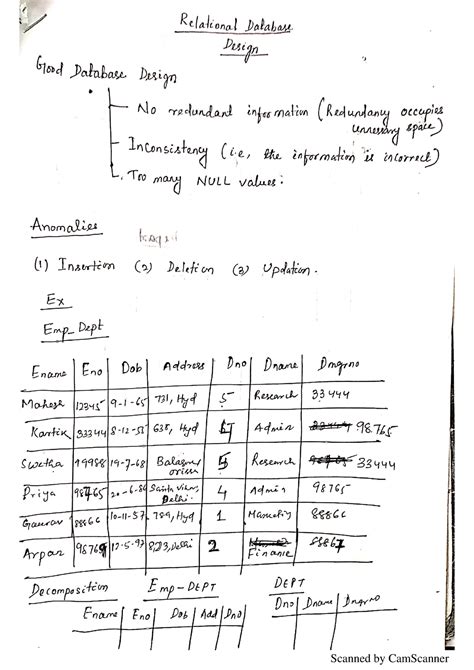 Relational Database
Design
Good Database Design
No redundant information (Redundancy occupies
unnessary space)
Inconsistency (i.e, the information is incorrect)
Too many NULL values.
Anomalies
(1) Insertion (2) Deletion (3) Updation.
Ex
Emp_Dept
Ename Eno Dob Address Dno Dname Dmgrno
Mahesh 12345 9-1-65 731, Hyd 5 Research 33444
Kartik 33344 8-12-55 638, Hyd Admin 98765
Swetha 19-7-68 5 Research 33444
Priya 98765 20-6- Delhi. 4 Admin 98765
Gaurav 88866 10-11-57 789, Hyd 1 88866
Arpan 98769 12-5-97 Delhi 2 Finance 88867
Decomposition Emp-DEPT DEPT
Ename Eno Dob Add Dno Dno Dname Dmgrno
Scanned by CamScanner